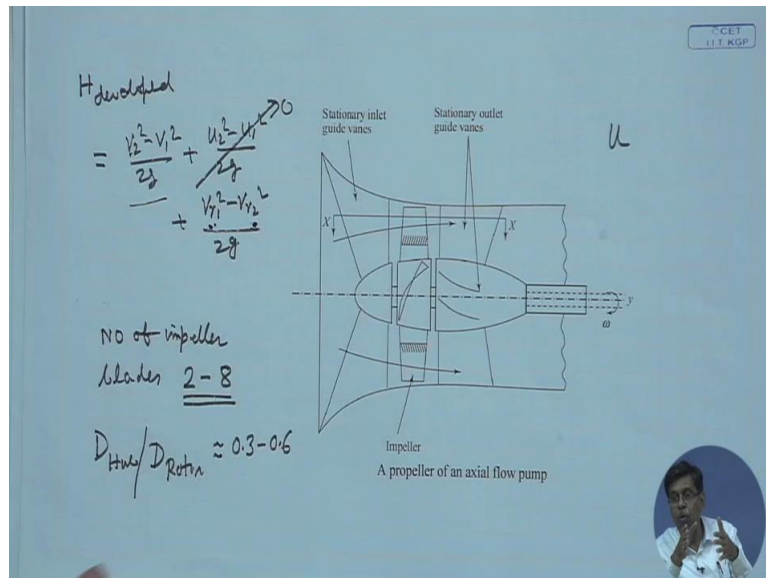 CCET
I.I.T. KGP
H developed
= V₂² - V₁² / 2g + U₂² - U₁² / 2g → 0
+ Vr₁² - Vr₂² / 2g
NO of impeller
blades 2-8
D Hub / D Rotor ≈ 0.3-0.6
Stationary inlet
guide vanes
Stationary outlet
guide vanes
u
X
X
y
ω
Impeller
A propeller of an axial flow pump